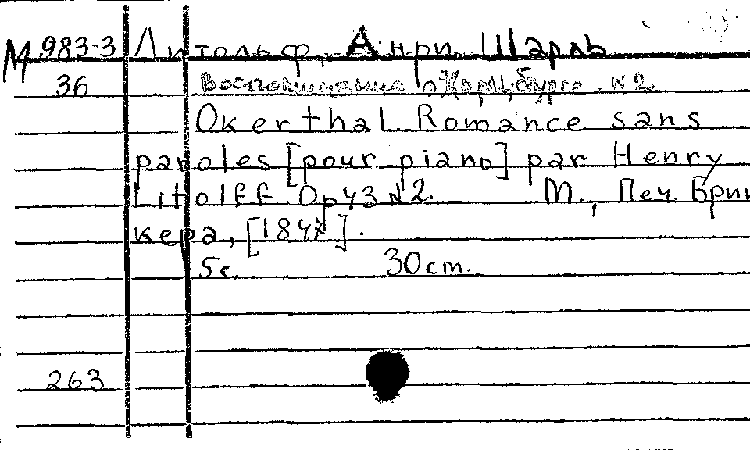 М 983-3 Литольф, Анри Шарль
36 Воспоминание о Харцбурге. №2
Okerthal Romance sans
paroles [pour piano] par Henry
Litolff Op 43 №2. М., Печ Брин
кера, [184 ].
5с. 30 cm.
263